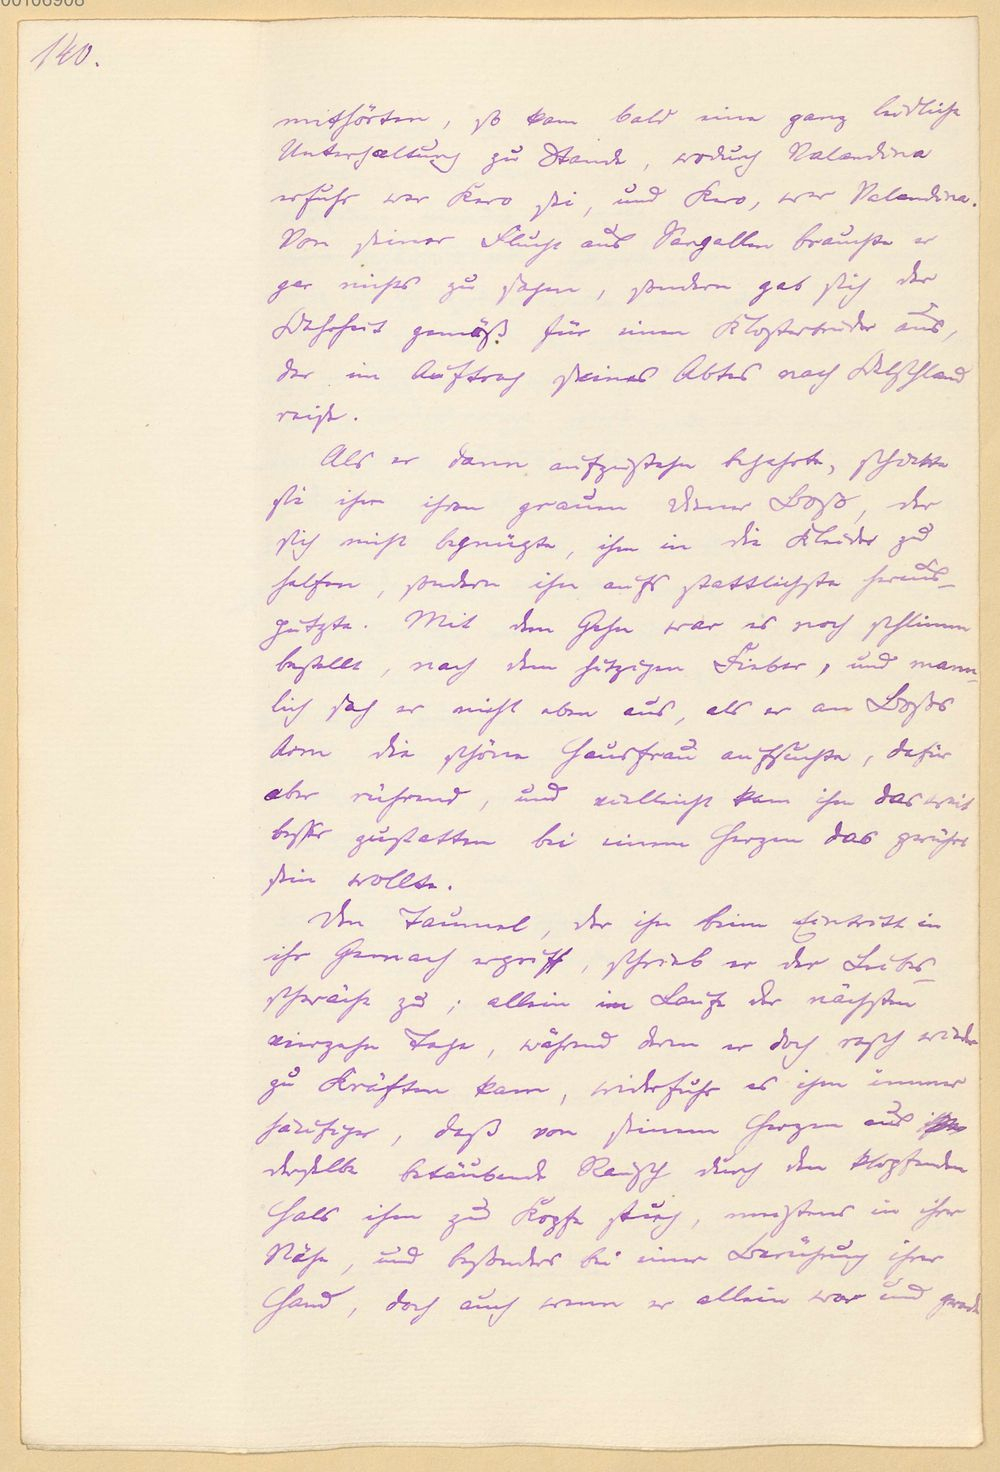 00106908
140.
mithörten, so kam bald eine ganz leidliche
Unterhaltung zu Stande, wodurch Valandina
erfuhr wer Kero sei, und Kero, wer Valandina.
Von seiner Flucht aus Sangallen brauchte er
gar nichts zu sagen, sondern gab sich der
Wahrheit gemäß für einen Klosterbruder aus,
der im Auftrag seines Abtes nach Welschland
reise.
Als er dann aufzustehn begehrte, schickte
sie ihm ihren grauen Diener Boso, der
sich nicht begnügte, ihm in die Kleider zu
helfen, sondern ihn aufs stattlichste heraus-
putzte. Mit dem Gehn war es noch schlimm
bestellt, nach dem hitzigen Fieber, und mann-
lich sah er nicht eben aus, als er an Bosos
Arm die schöne Hausfrau aufsuchte, dafür
aber rührend, und vielleicht kam ihm das weit
besser zustatten bei einem Herzen das gerührt
sein wollte.
Den Taumel, der ihn beim Eintritt in
ihr Gemach ergriff, schrieb er der Leibes-
schwäche zu; allein im Laufe der nächsten
vierzehn Tage, während deren er doch rasch wieder
zu Kräften kam, widerfuhr es ihm immer
häufiger, daß von seinem Herzen aus
derselbe betäubende Rausch durch den klopfenden
Hals ihm zu Kopfe stieg, meistens in ihrer
Nähe, und besonders bei einer Berührung ihrer
Hand, doch auch wenn er allein war und gerade